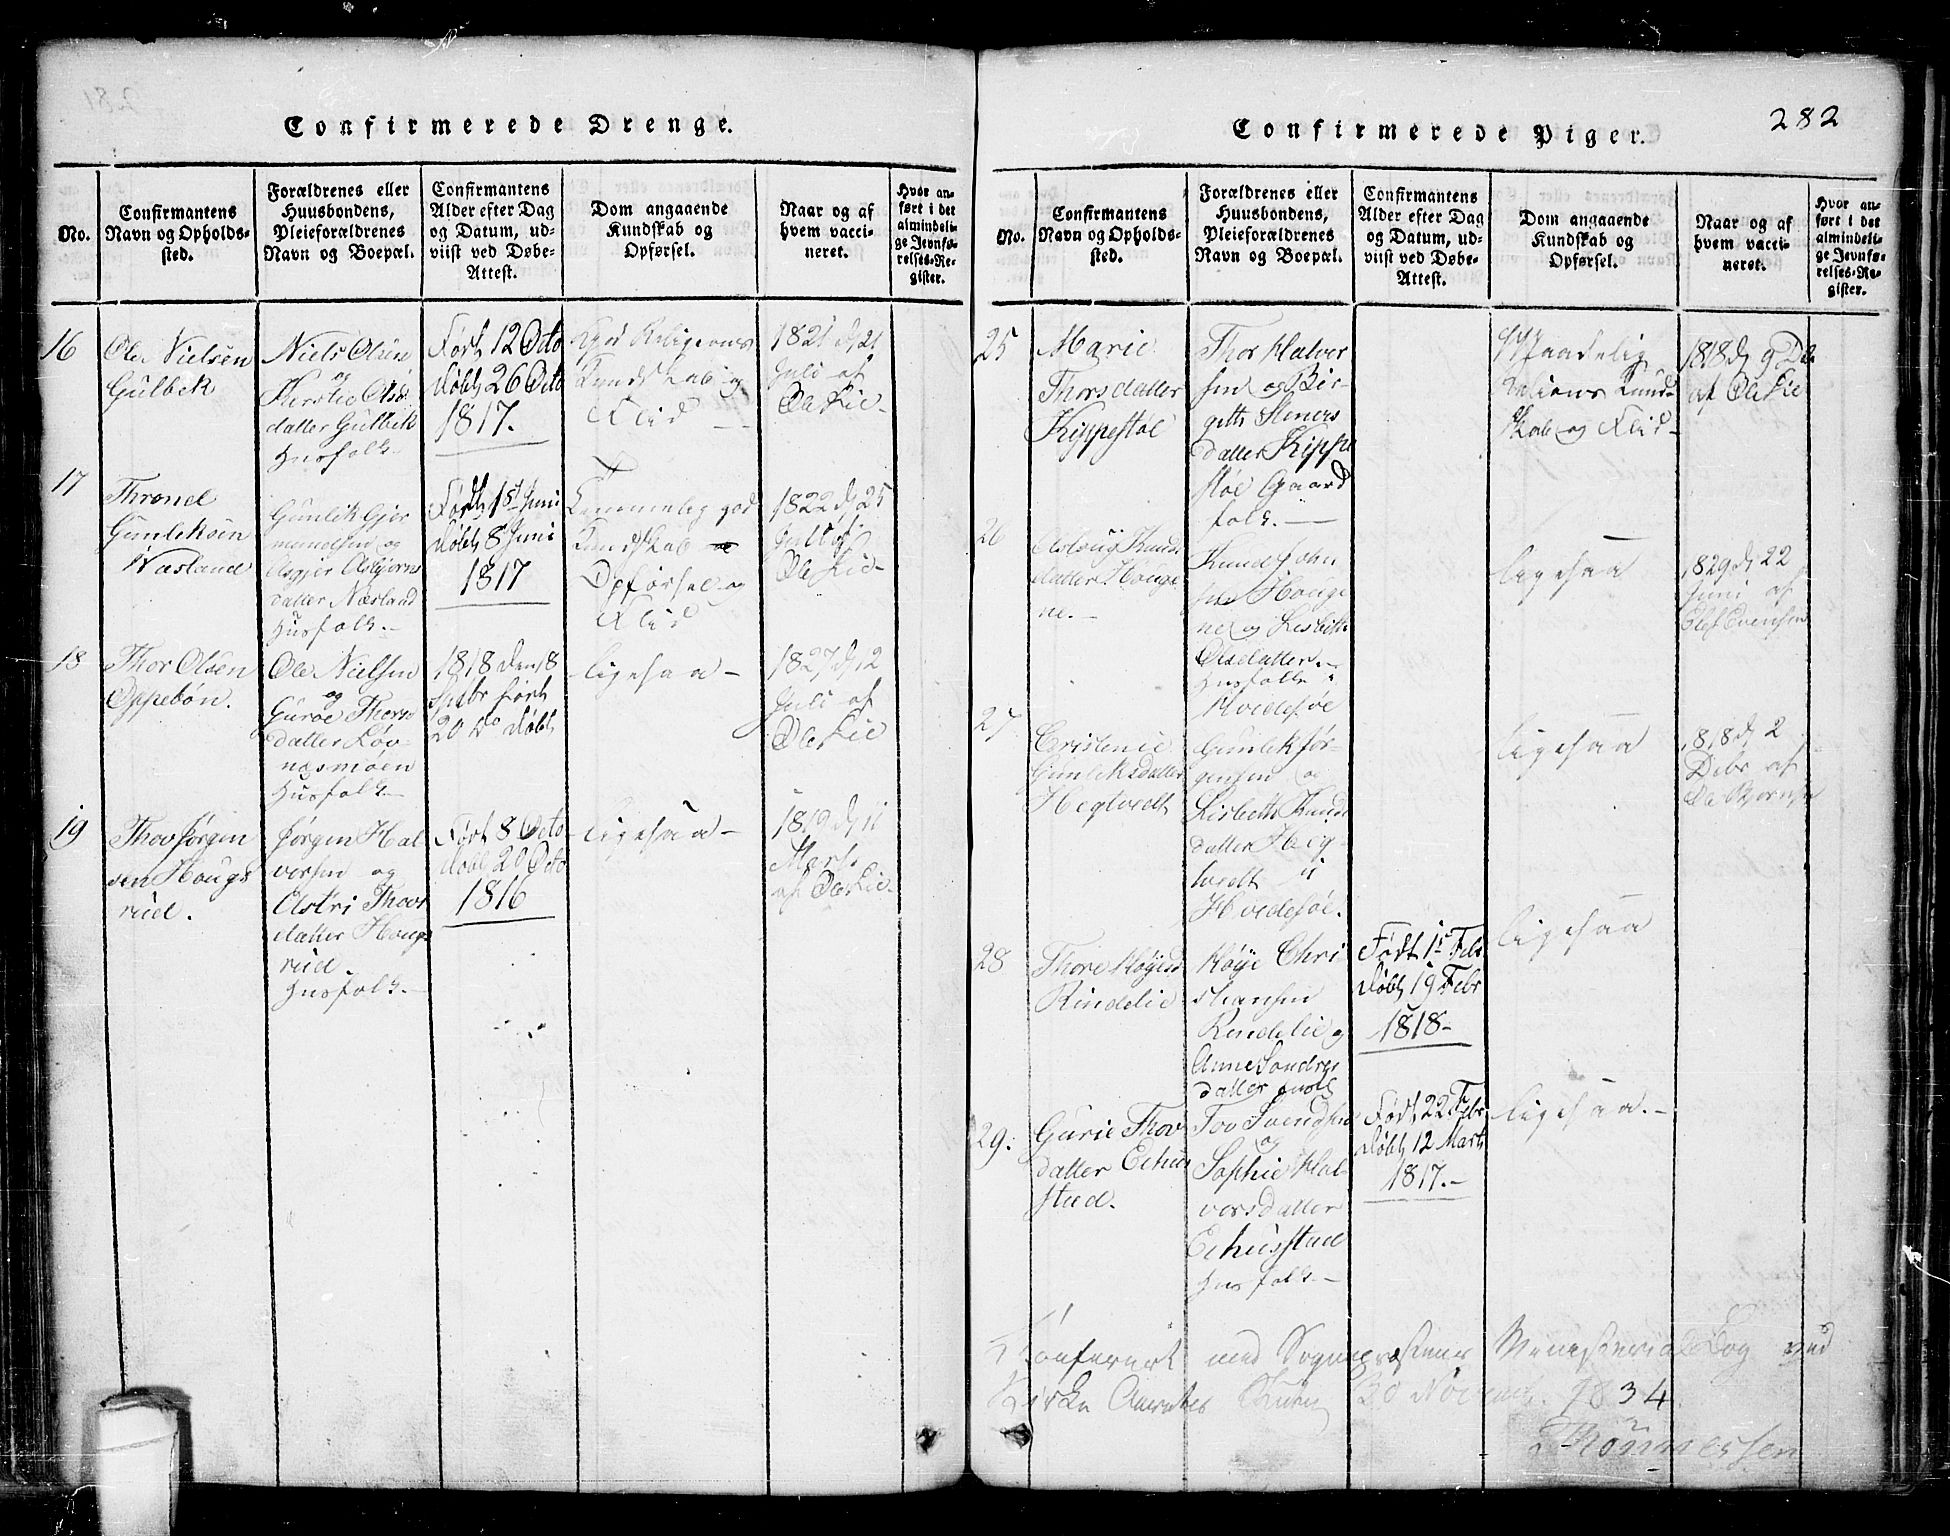 282
Confirmerede Drenge.
No.
Confirmantens
Navn og Opholds-
sted.
Forældrenes eller
Huusbondens,
Pleieforældrenes
Navn og Boepæl.
Confirmantens
Alder efter Dag
og Datum, ud-
viist ved Døbe-
Attest.
Dom angaaende
Kundskab og
Opførsel.
Naar og af
hvem vacci-
neret.
Hvor an-
ført i det
almindeli-
ge Jevnfø-
relses-Re-
gister.
16
Ole Nielsen
Gulbek
Niels Olsen
og
Kirstie Ols
datter Gulbek
Husfolk.
Født 12 Octo
døbt 26 Octo
1817.
Religions
Kundskab og
Flid
1821 d. 21
Juli af
Ole Lie
17
Thrond
Gunleksen
Næsland
Gunlik Gjer
mundsen og
Asgjer Asbjørns
datter Næsland
Husfolk.
Født 1st Juni
døbt 8 Juni
1817
Temmelig god
Kundskab
Opførsel og
Flid
1822 d. 25
Juli af
Ole Lie
18
Thor Olsen
Oppebøn.
Ole Nielsen
og
Guroe Thors
datter Løv-
næsmoen
Husfolk
1818 den 18
Spbr født
20 do døbt
ligesaa
1827 d. 12
Juli af
Ole Lie
19
Thov Jørgen
sen Hougs
rud.
Jørgen Hal
vorsen og
Astri Thovs
datter Hougs
rud.
Husfolk.
Født 8 Octo
døbt 20 Octo
1816
ligesaa
1819 d. 11
Marts
af Ole Lie
Confirmerede Piger.
No.
Confirmantens
Navn og Opholds-
sted.
Forældrenes eller
Huusbondens,
Pleieforældrenes
Navn og Boepæl.
Confirmantens
Alder efter Dag
og Datum, ud-
viist ved Døbe-
Attest.
Dom angaaende
Kundskab og
Opførsel.
Naar og af
hvem vacci-
neret.
Hvor an-
ført i det
almindeli-
ge Jevnfø-
relses-Re-
gister.
25
Marie
Thorsdatter
Kippestøl
Thor Halvor
sen og Bir-
gitte
datter Kippe
støl Gaard
folk.
Maadelig
Kund-
skab og Flid
1818 d. 9 De
af Ole Lie
26
Aslaug Knuds
datter Houge
ne.
Knud Joan
sen Houge
ne og Lisbeth
Olsdatter.
Husfolk i
Hvidesøe
ligesaa
1829 d. 22
Juni af
Olef Evensen
27
Cristenie
Gunleksdatter
Hegtvedt
Gunlek Jør-
gensen og
Lisbeth Knuds
datter Heg-
tvedt i
Hvidesøe.
ligesaa
1818 d. 2
Debr af
Ole Bjørnsen
28
Thore Røyesd
Rindelie
Røye Chri
stiansen
Rindelie og
Anne Sondres
datter
Født 15 Feb
døbt 19 Febr
1818
ligesaa
29.
Gurie Thov
datter Echus
stad.
Tov Svendsen
og
Sophie Hal-
vorsdatter
Echusstad
Husfolk.
Født 22 Febr
døbt 12 Marts
1817.
ligesaa.
Confereret med Sognepræstens Ministerialbog ved
Kirke 30 Novemb. 1834
Thønnessen